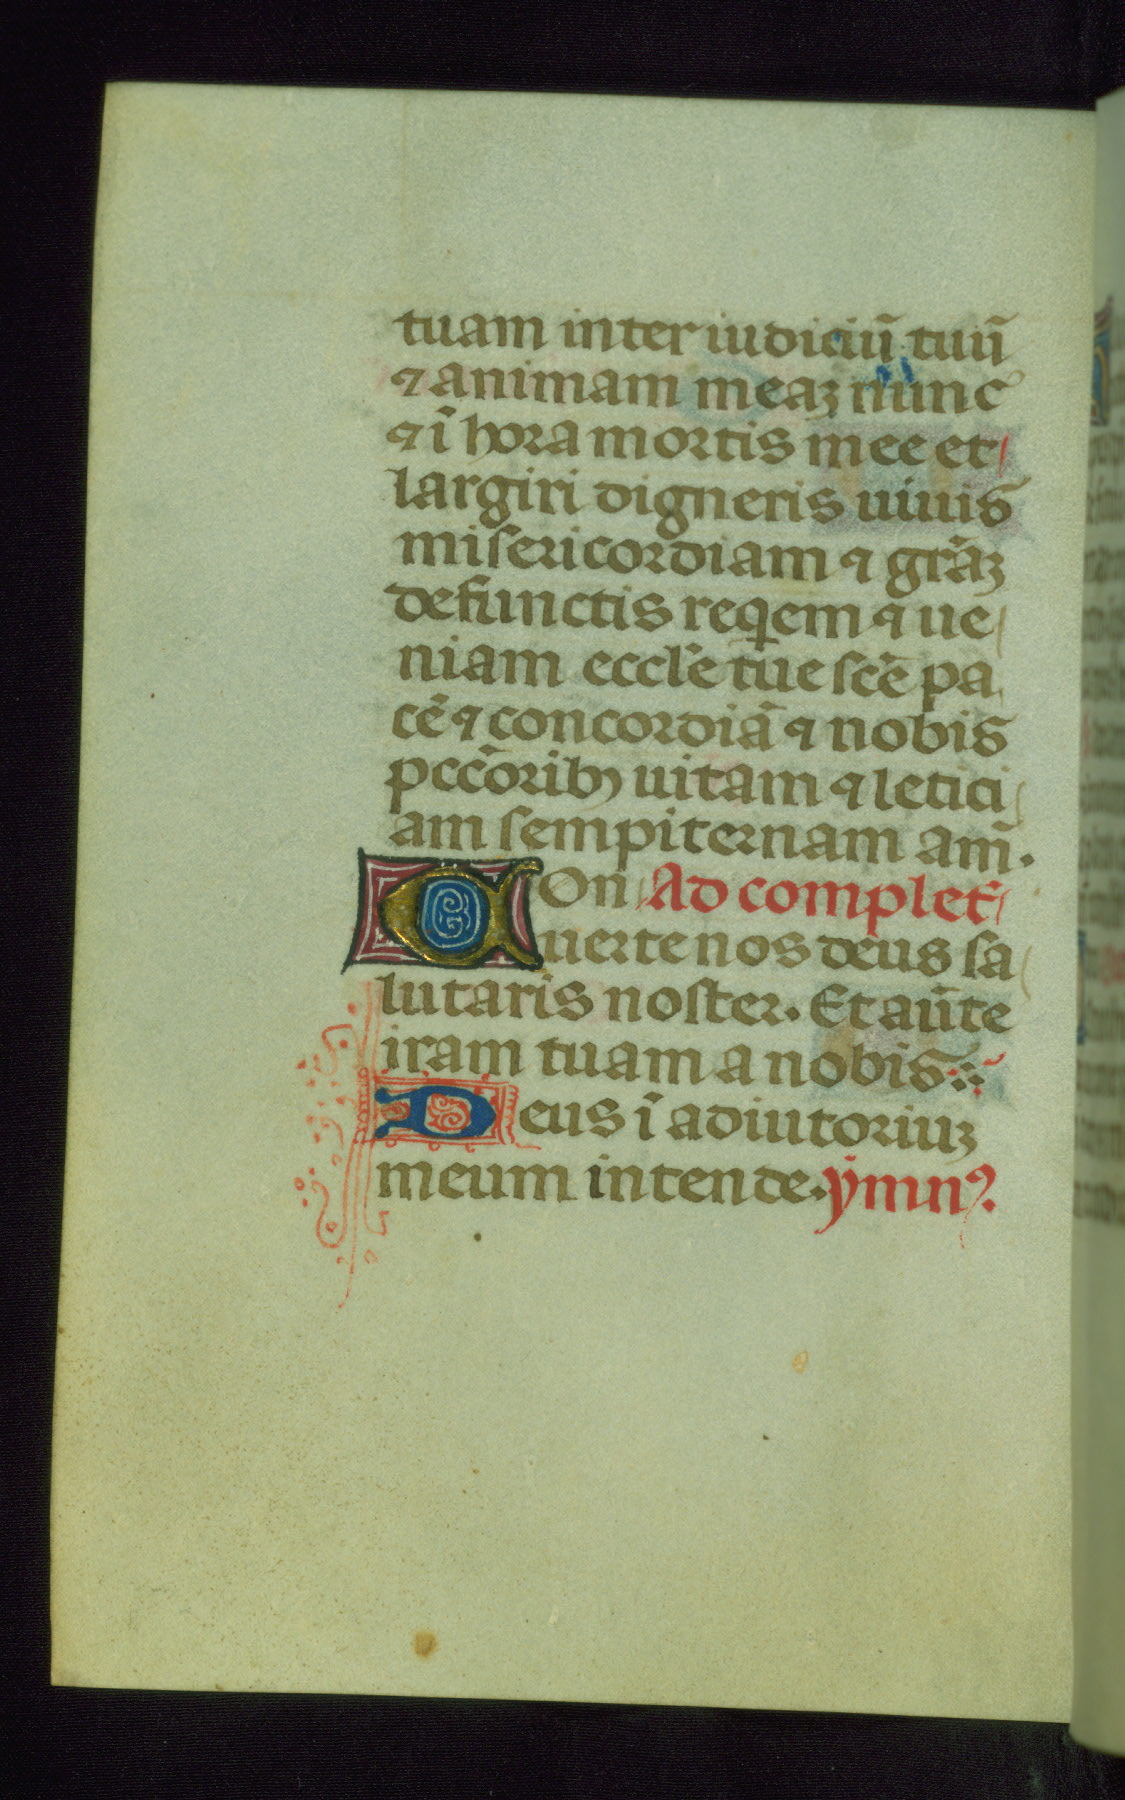 tuam inter iudiciū tuū
⁊ animam meaꝫ nunc
⁊ ī hora mortis mee et
largiri digneris uiuis
misericordiam ⁊ grāꝫ
defunctis reqiem ⁊ ue
niam eccl'e tue scē pa
cē ⁊ concordiā ⁊ nobis
pccōribꝫ uitam ⁊ letici
am sempiternam am̄.
COn Ad complet̄
uerte nos deus sa
lutaris noster. Et aūte
iram tuam a nobis:
Deus ī adiutoriuꝫ
meum intende. ymnꝰ.